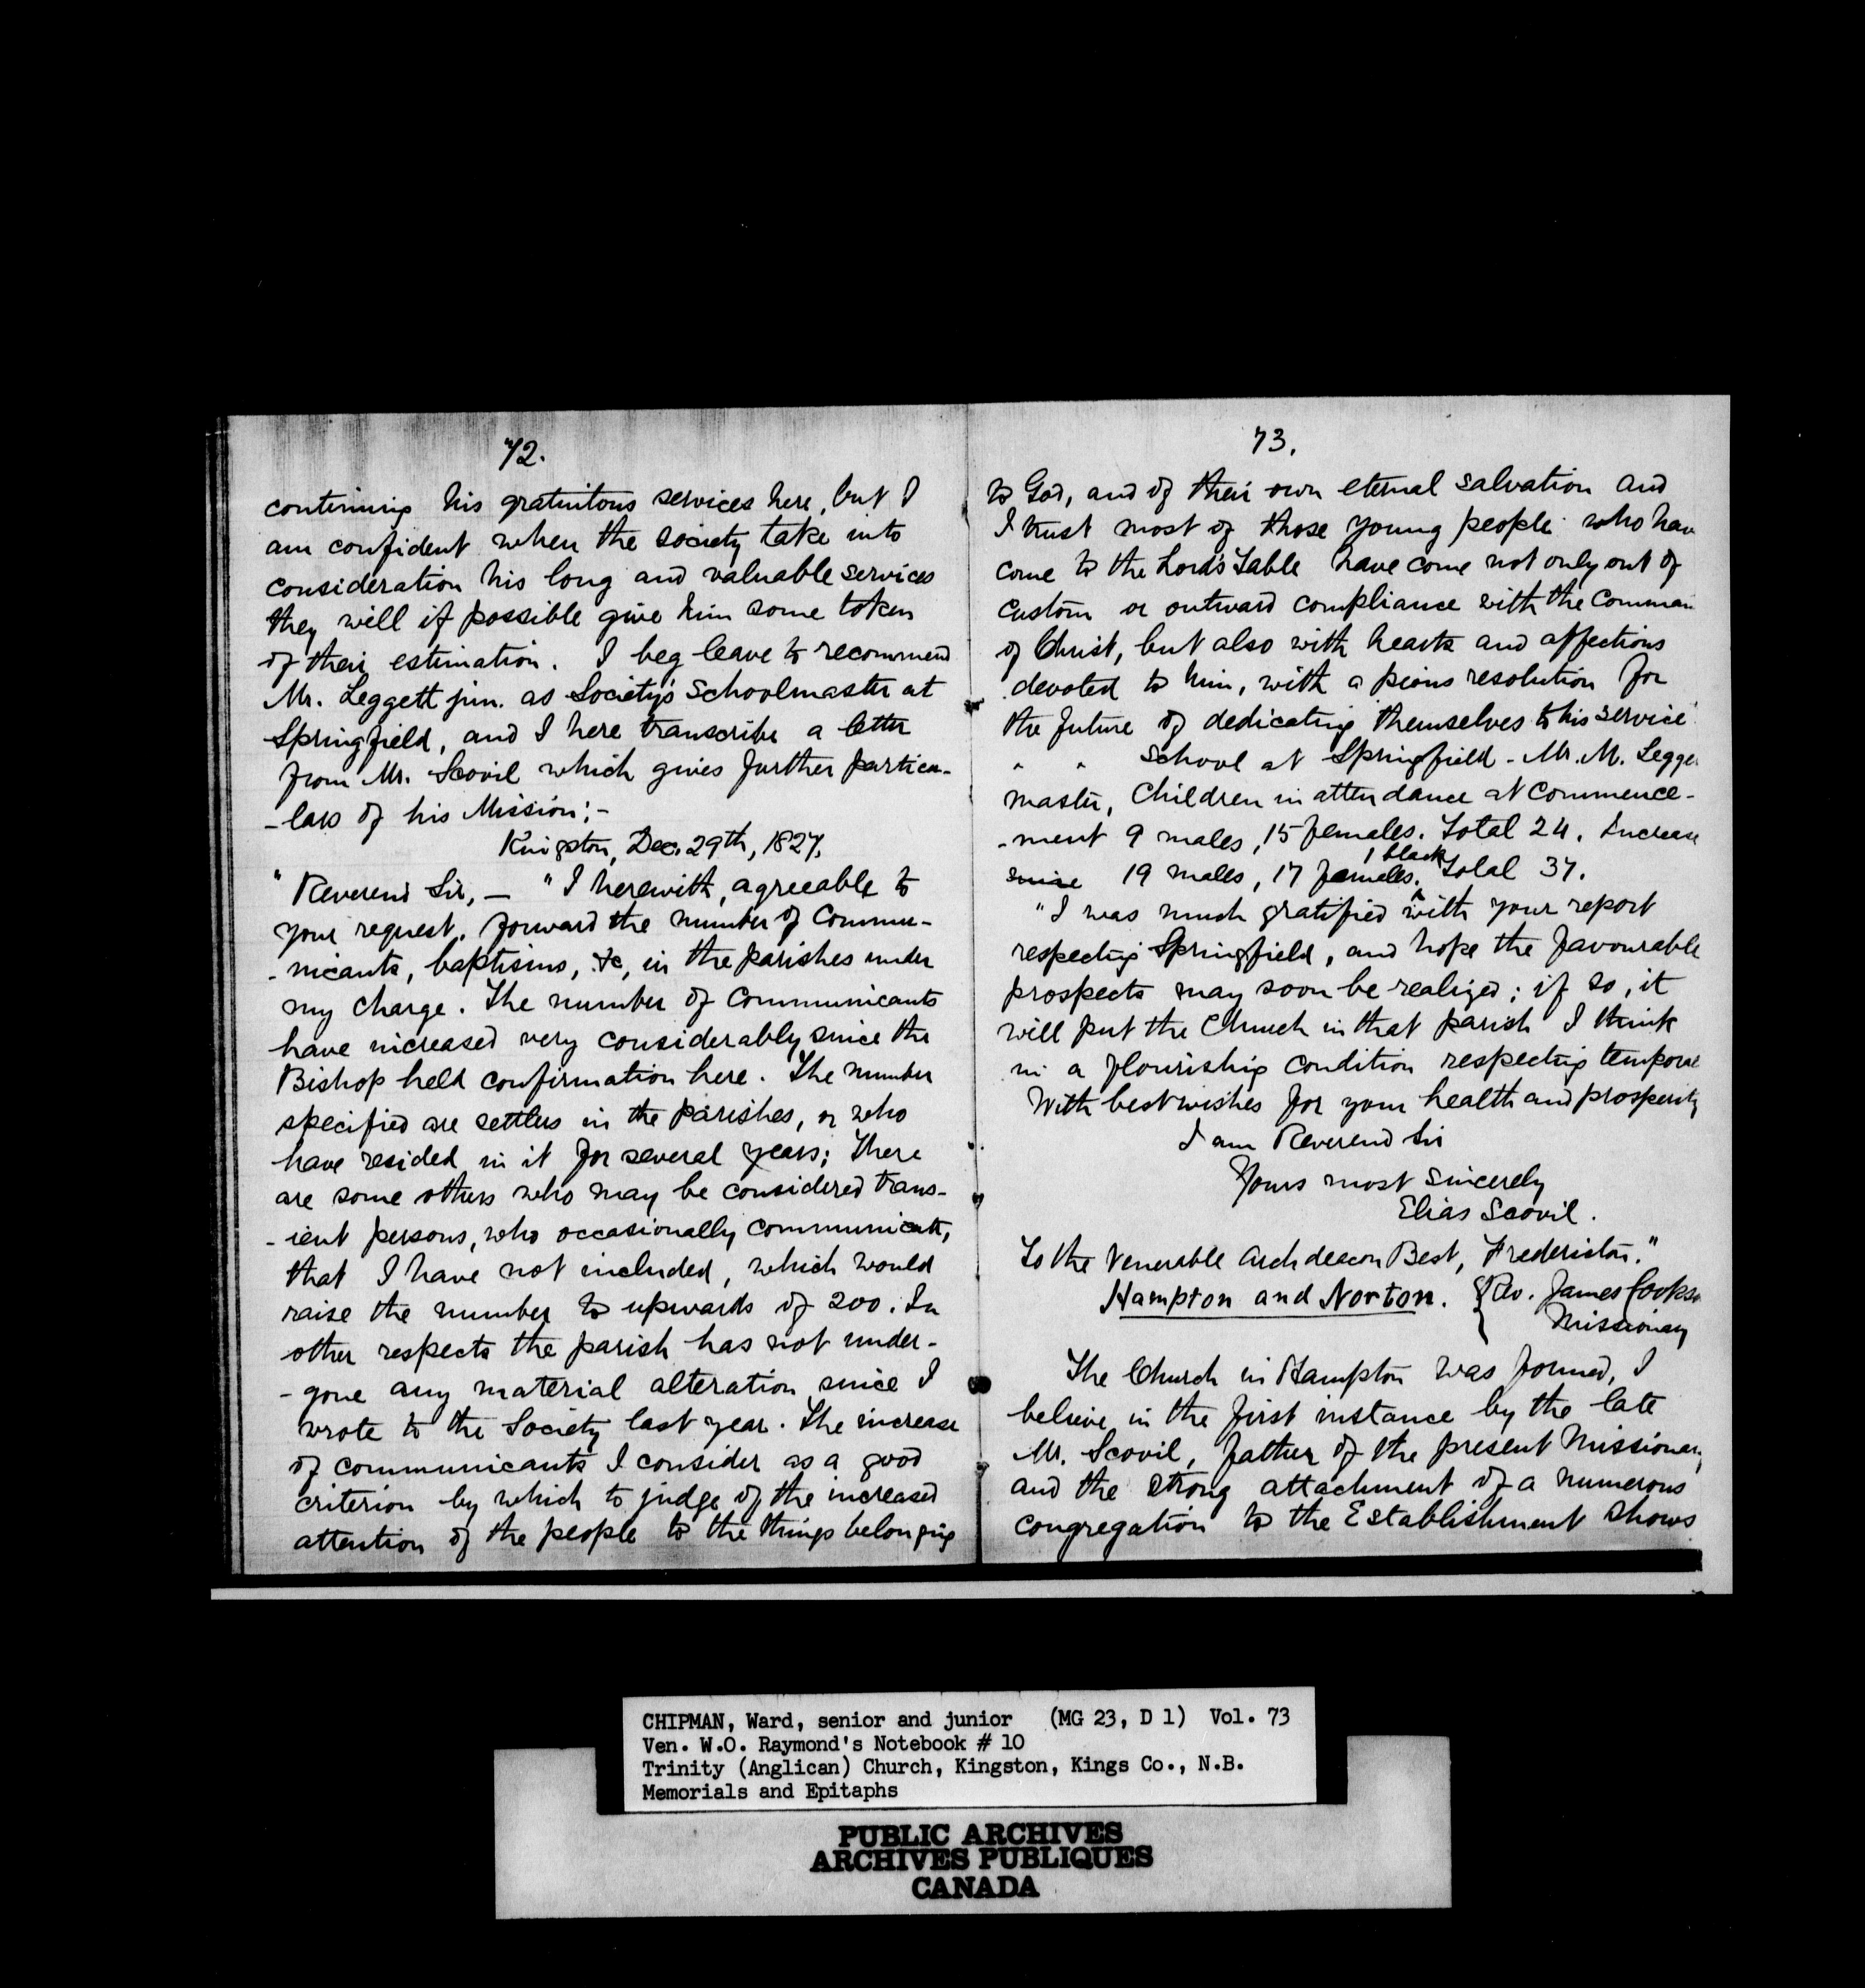 72.
continuing his gratuitous services here, but I
am confident when the society take into
consideration his long and valuable services
they will if possible give him some token
of their estimation. I beg leave to recommend
Mr. Leggett jun. as Society's Schoolmaster at
Springfield, and I here transcribe a letter
from Mr. Scovil which gives further particu-
-lars of his Mission;-
Kingston, Dec. 29th, 1827.
"Reverend Sir, — "I herewith, agreeable to
your request, forward the number of Commu-
-nicants, baptisms, &c, in the parishes under
my charge. The number of Communicants
have increased very considerably since the
Bishop held confirmation here. The number
specified are settlers in the parishes, or who
have resided in it for several years; There
are some others who may be considered trans-
-ient persons, who occasionally communicate,
that I have not included, which would
raise the number to upwards of 200. In
other respects the parish has not under-
-gone any material alteration since I
wrote to the Society last year. The increase
of communicants I consider as a good
criterion by which to judge of the increased
attention of the people to the things belonging
73.
to God, and of their own eternal salvation and
I trust most of those young people who hav
come to the Lord's Table have come not only out of
custom or outward compliance with the Comman
of Christ, but also with hearts and affections
devoted to him, with a pious resolution for
the future of dedicating themselves to his service
" " School at Springfield - Mr. M. Legge
master, Children in attendance at Commence-
-ment 9 males, 15 females. Total 24. Increase
since 19 males, 17 females. 1 black Total 37.
"I was much gratified with your report
respecting Springfield, and hope the favourable
prospects may soon be realized; if so, it
will put the Church in that parish I think
in a flourishing condition respecting temporal
With best wishes for your health and prosperity
I am Reverend Sir
Yours most sincerely
Elias Scovil.
To the Venerable Archdeacon Best, Fredericton."
Hampton and Norton. { Rev. James Cookso
Missionary
The Church in Hampton was formed, I
believe in the first instance by the late
Mr. Scovil, father of the present Missionary
and the strong attachment of a numerous
congregation to the Establishment shows
CHIPMAN, Ward, senior and junior (MG 23, D 1) Vol. 73
Ven. W.O. Raymond's Notebook # 10
Trinity (Anglican) Church, Kingston, Kings Co., N.B.
Memorials and Epitaphs
PUBLIC ARCHIVES
ARCHIVES PUBLIQUES
CANADA